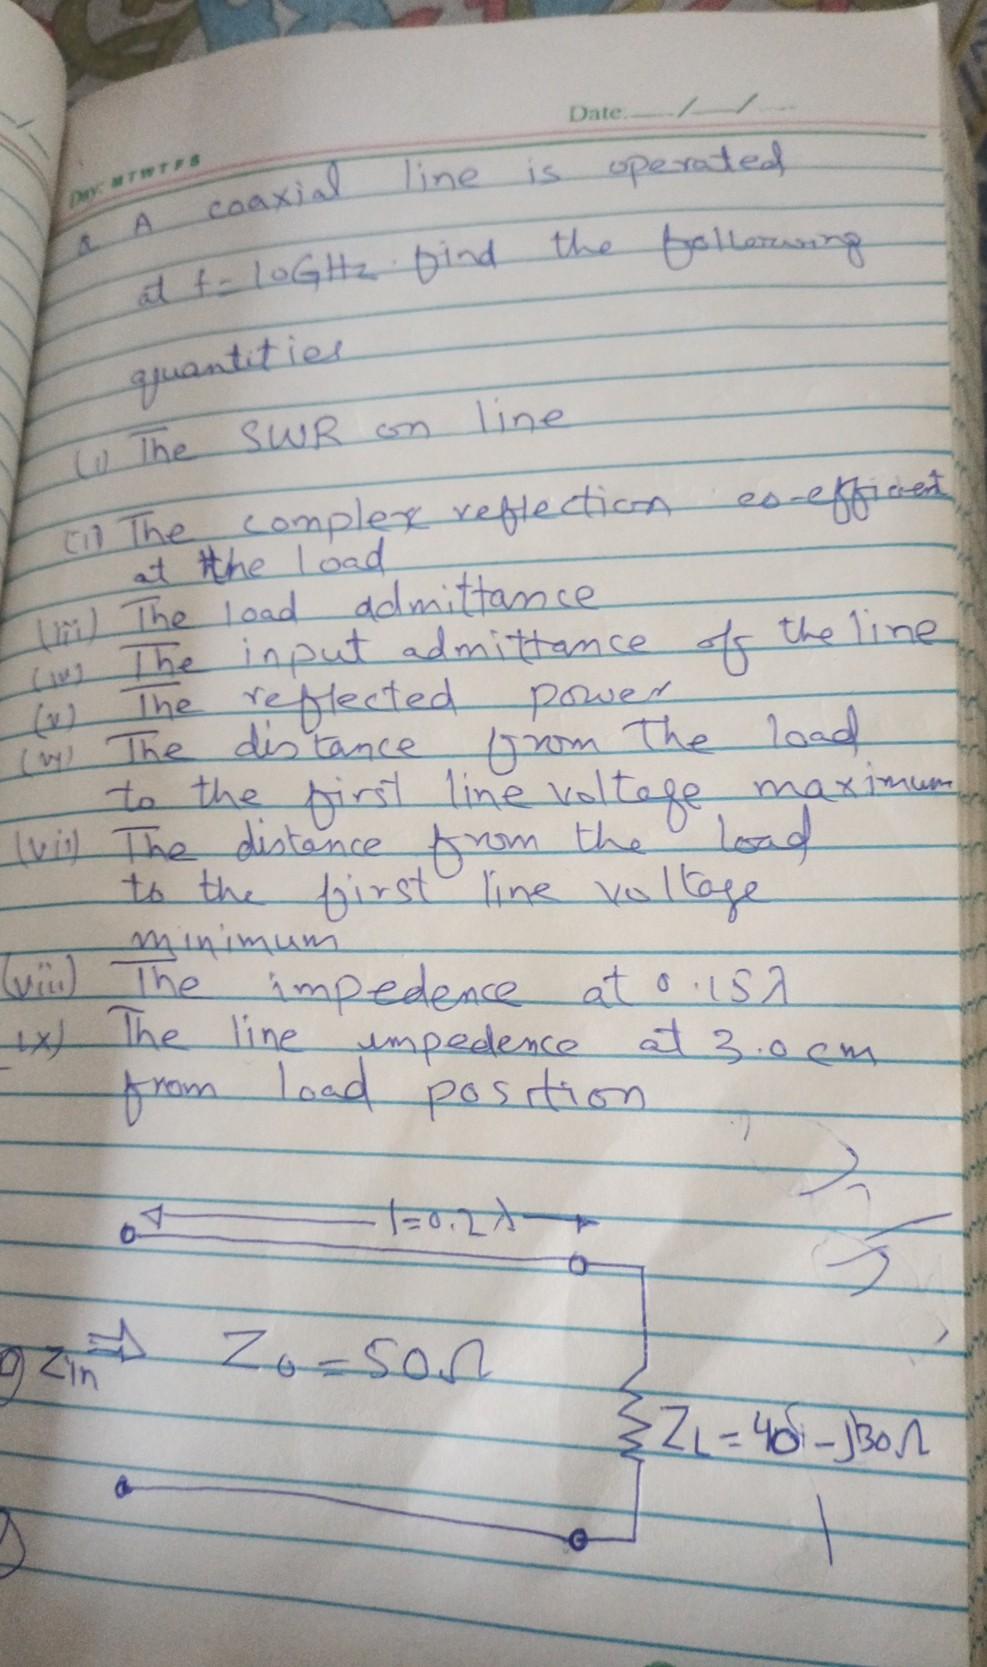 Date.
Day: M T W T F S
Q A coaxial line is operated
at f = 10GHz. find the following
quantities
(i) The SWR on line
(ii) The complex reflection co-efficient
at the load
(iii) The load admittance
(iv) The input admittance of the line
(v) The reflected power
(vi) The distance from the load
to the first line voltage maximum
(vii) The distance from the load
to the first line voltage
minimum
(viii) The impedence at 0.15λ
ix) The line impedence at 3.0 cm
from load position
l=0.2λ
Zin Z0 = 50Ω
ZL = 40 - j30Ω